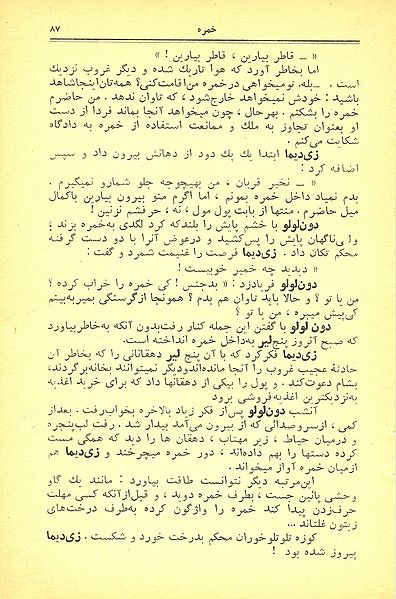 خمره
۸۷
« ــ قاطر بیارین ، قاطر بیارین ! »
اما بخاطر آورد که هوا تاریك شده و دیگر غروب نزدیك
است . ــ بله، تو میخواهی در خمره من اقامت کنی؟ همه‌تان اینجا شاهد
باشید : خودش نمیخواهد خارج شود ، که تاوان ندهد . من حاضرم
خمره را بشکنم . بهرحال ، چون میخواهد آنجا بماند فردا از دست
او بعنوان تجاوز به ملك و ممانعت استفاده از خمره به دادگاه
شکایت می‌کنم .
زی‌دیما ابتدا یك پك دود از دهانش بیرون داد و سپس
اضافه کرد :
« ــ نخیر قربان ، من بهیچوجه جلو شمارو نمیگیرم .
بدم نمیاد داخل خمره بمونم ، اما اگرم منو بیرون بیارین باکمال
میل حاضرم . منتها از بابت پول مول ، نه ، حرفشم نزنین !
دون‌لولو با خشم پایش را بلند که کرد لگدی به‌خمره بزند ؛
وا بی ناگهان پایش را پس کشید و درعوض آنرا با دو دست گرفته
محکم تکان داد . زی‌دیما فرصت را غنیمت شمرد و گفت :
« دیدید چه خمیر خوبیست !
دون‌لولو فریادزد : « بدجنس ! کی خمره را خراب کرده ؟
من یا تو ؟ و حالا باید تاوان هم بدم ؟ همونجا از گرسنگی بمیر به‌بینم
کی‌پیش میبره ، من یا تو ؟
دون لولو با گفتن این جمله کنار رفت بدون آنکه به‌خاطر بیاورد
که صبح آنروز پنج لیر به‌داخل خمره انداخته است.
زی‌دیما فکر کرد که با آن پنج لیر دهقانانی را که بخاطر آن
حادثهٔ عجیب غروب را آنجا مانده‌اند و دیگر نمیتوانند بخانه برگردند،
بشام دعوت کند . و پول را بیکی از دهقانها داد که برای خرید اغذیه
به‌نزدیکترین اغذیه‌فروشی برود
آنشب دون‌لولو پس‌از فکر زیاد بالاخره بخواب رفت . بعد از
کمی ، از سر و صدائی که از بیرون می‌آمد بیدار شد . رفت لب‌پنجره
و درمیان حیاط ، زیر مهتاب ، دهقان ها را دید که همگی مست
کرده دستها را بهم داده‌اند ، دور خمره میچرخند و زی‌دیما هم
از میان خمره آواز میخواند .
این‌مرتبه دیگر نتوانست طاقت بیاورد : مانند یك گاو
وحشی پائین جست ، بطرف خمره دوید ، و قبل از آنکه کسی مهلت
حرف زدن پیدا کند خمره را واژگون کرده به‌طرف درخت‌های
زیتون غلتاند ...
کوزه تلوتلوخوران محکم بدرخت خورد و شکست . زی‌دیما
پیروز شده بود !